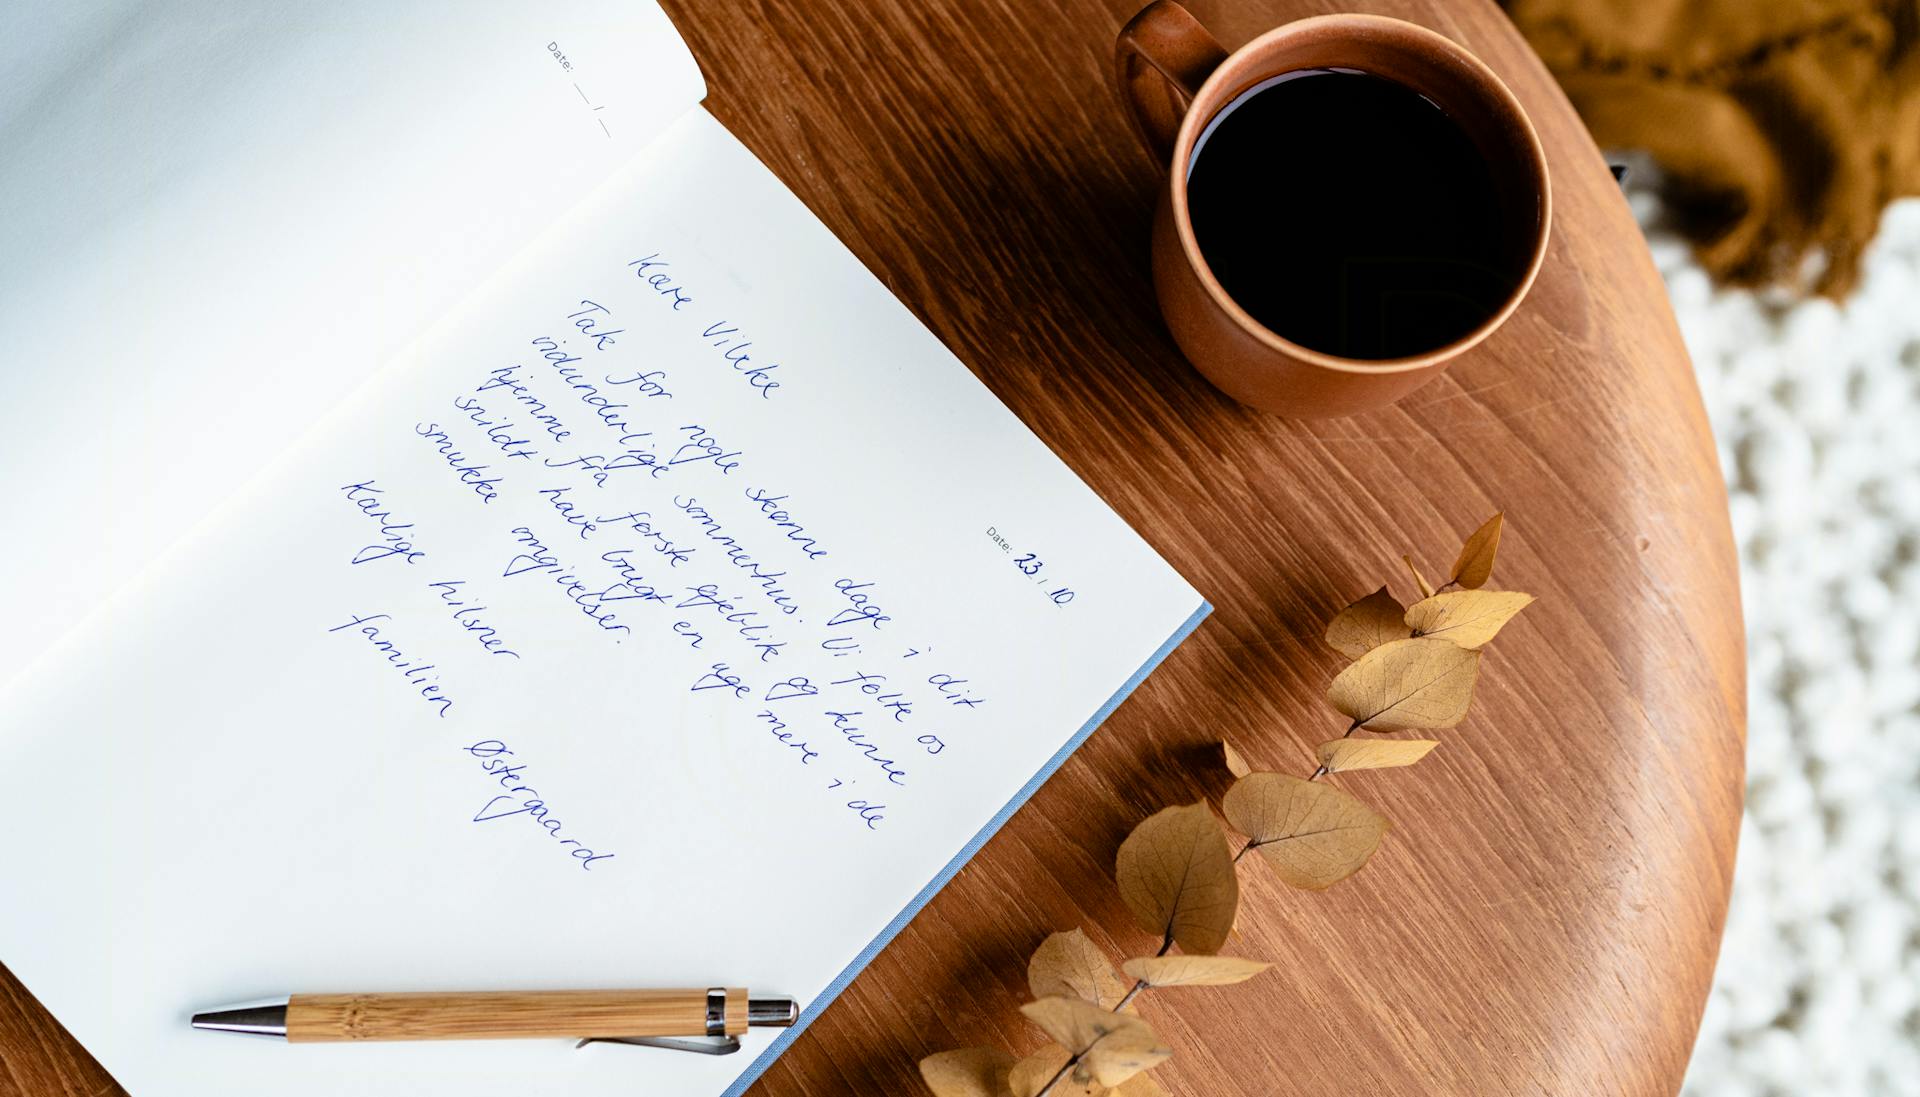 Date: __/__
Date: 23/10
Kære Vibeke
Tak for nogle skønne dage i dit
vidunderlige sommerhus. Vi følte os
hjemme fra første øjeblik og kunne
snildt have brugt en uge mere i de
smukke omgivelser.
Kærlige hilsner
familien Østergaard